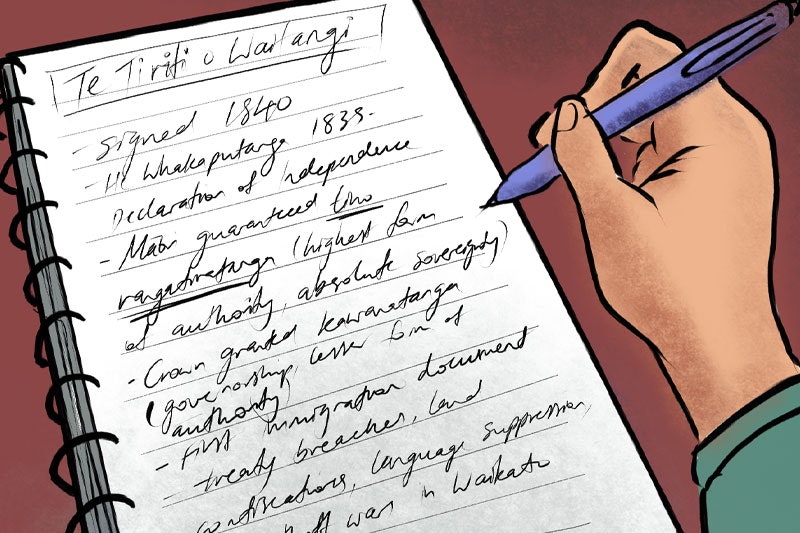 Te Tiriti o Waitangi
- Signed 1840
- He Whakaputanga 1835.
Declaration of Independence
- Māori guaranteed tino
rangatiratanga (highest form
of authority, absolute sovereignty)
- Crown granted kawanatanga
(governorship, lesser form of
authority)
- First immigration document
- treaty breaches, land
confiscations, language suppression,
wars in Waikato